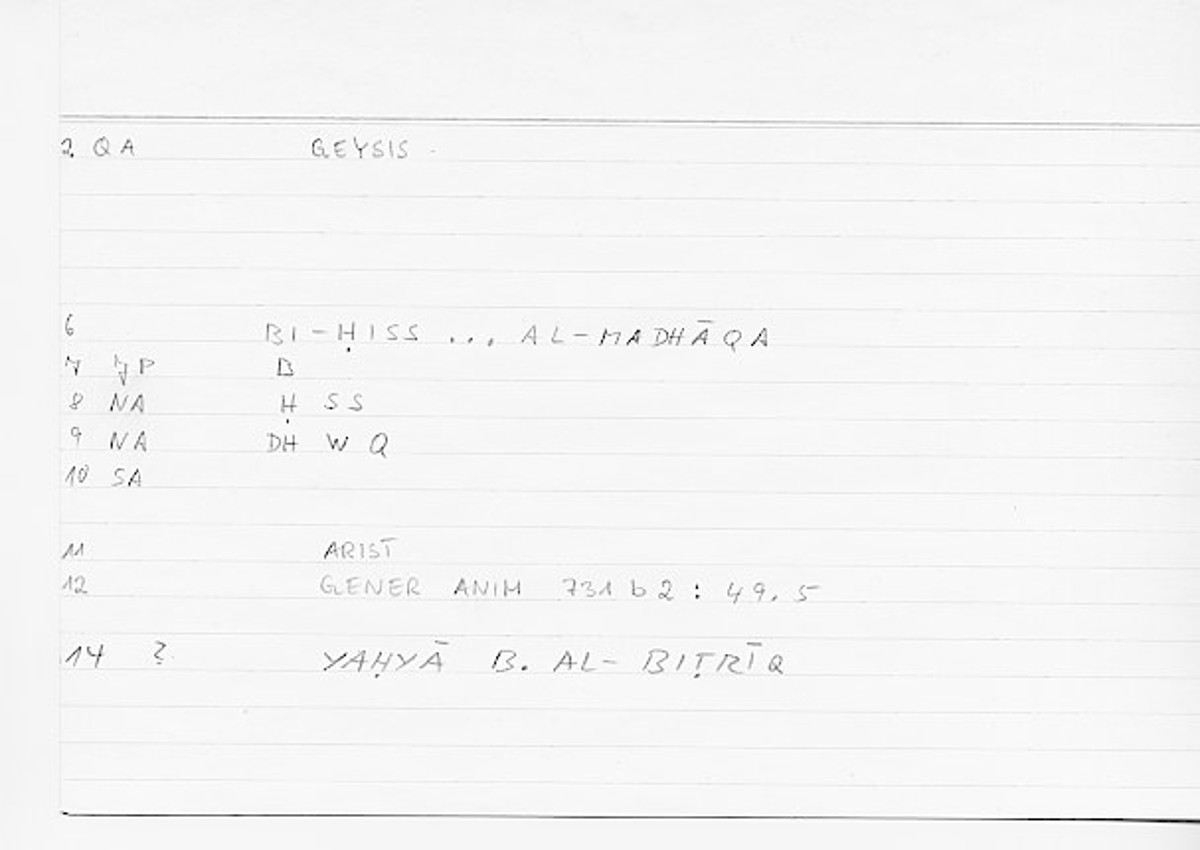 2 QA GEYSIS
6 BI-ḤISS ... AL-MADHĀQA
7 JP B
8 NA Ḥ SS
9 NA DH W Q
10 SA
11 ARIST
12 GENER ANIM 731 b 2 : 49.5
14 ? YAḤYĀ B. AL-BIṬRĪQ